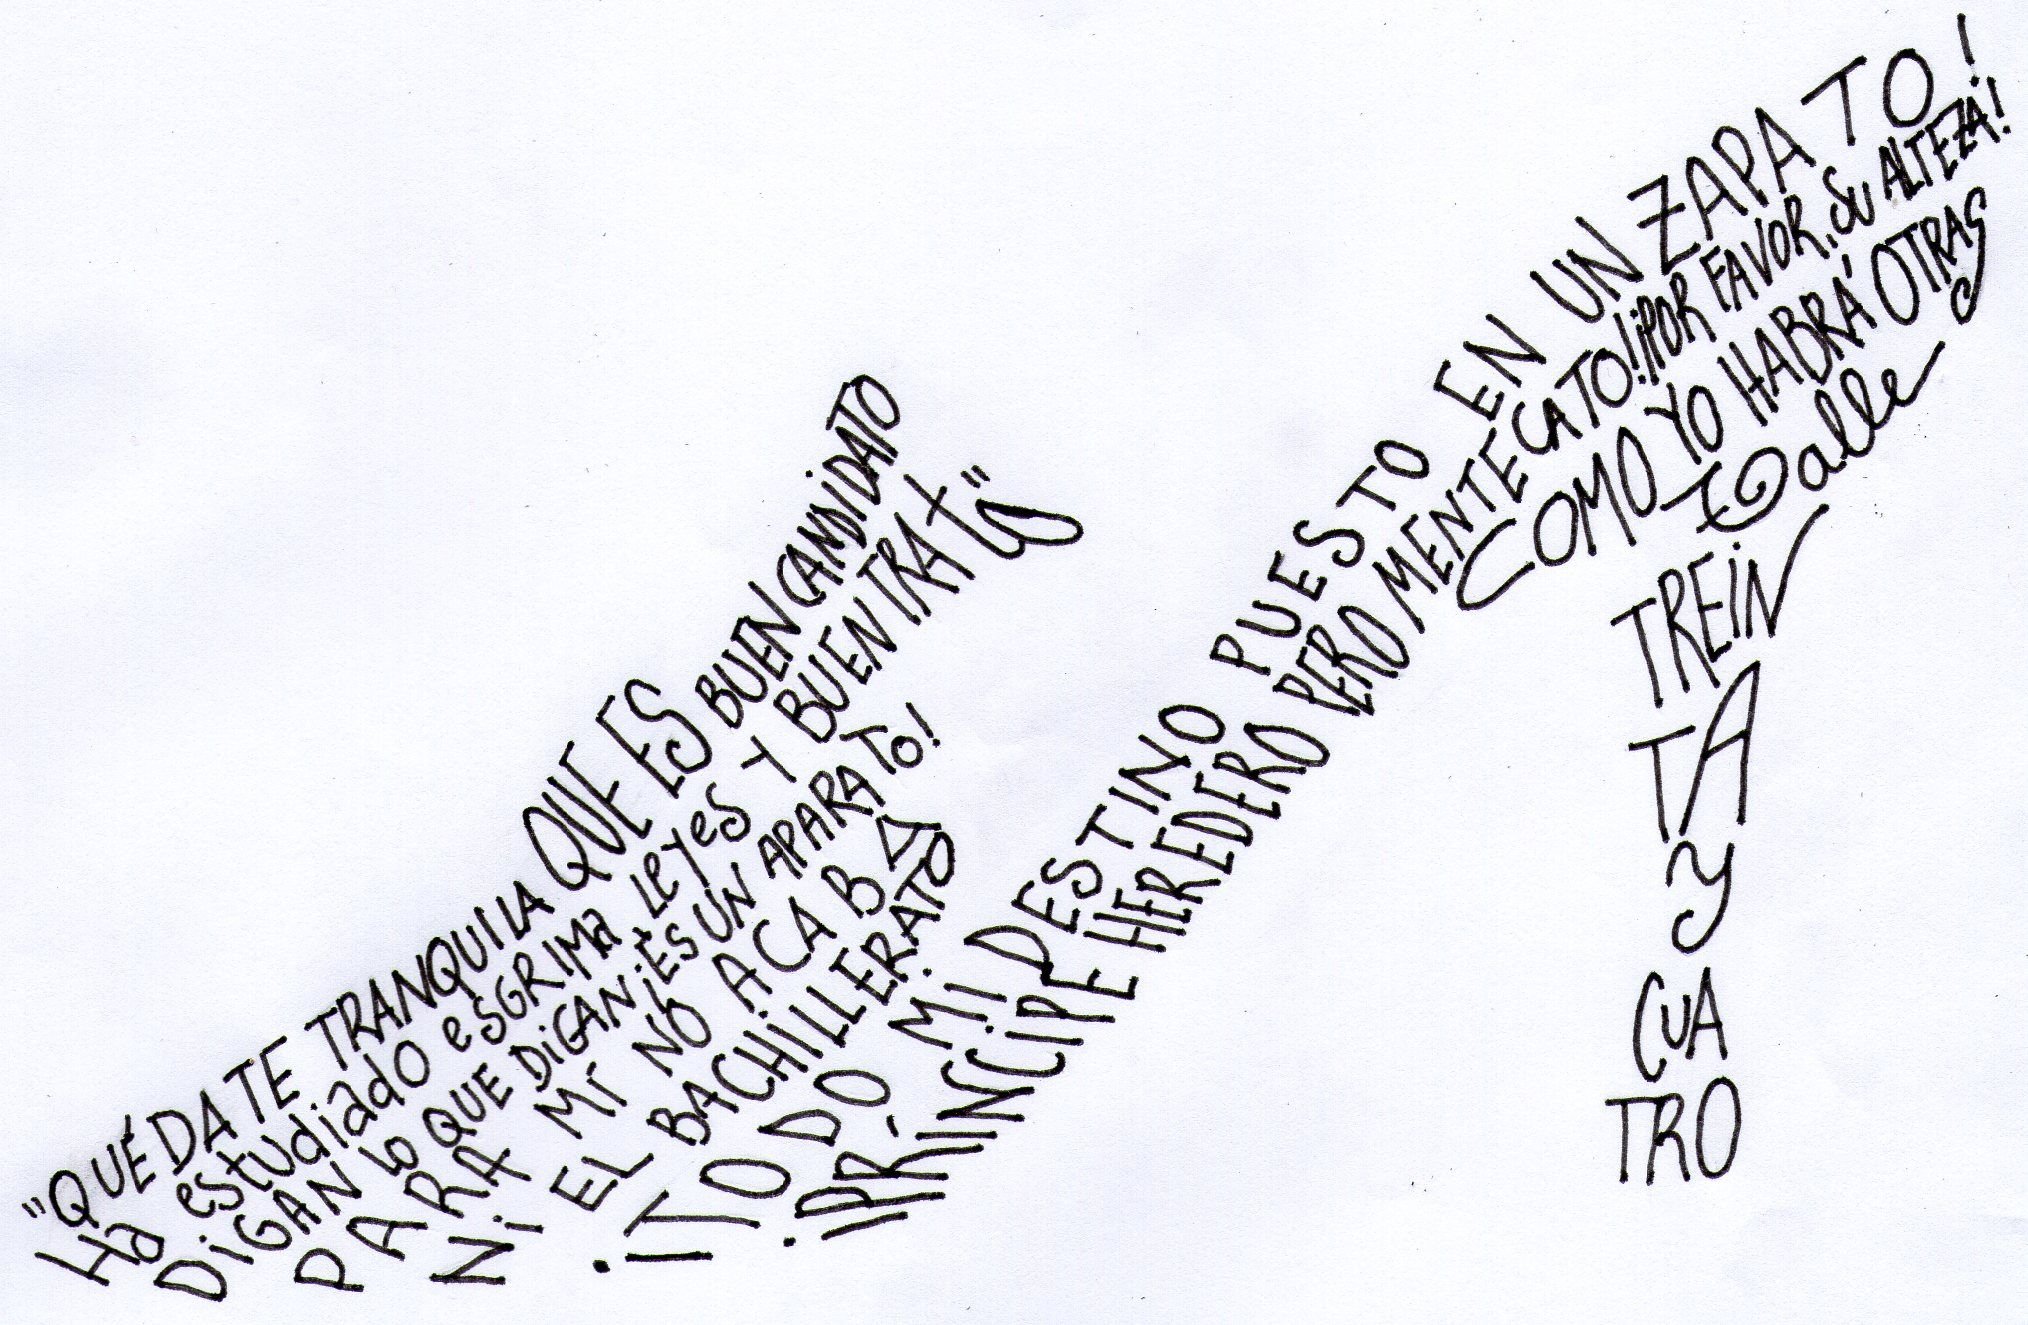 "QUÉDATE TRANQUILA QUE ES BUEN CANDIDATO
Ha estudiado esGRIMa, Leyes Y BUEN TRATO"
DiGAN Lo QUE DiGAN ¡ES UN APARATO!
PARA MÍ NO ACABÓ
Ni EL BACHiLLERATO
¡TODO MI DESTINO PUESTO EN UN ZAPATO!
¡PRÍNCIPE HEREDERO PERO MENTECATO! ¡POR FAVOR, SU ALTEZA!
COMO YO HABRÁ OTRAS
talle
TREiN
TA
y
CUA
TRO